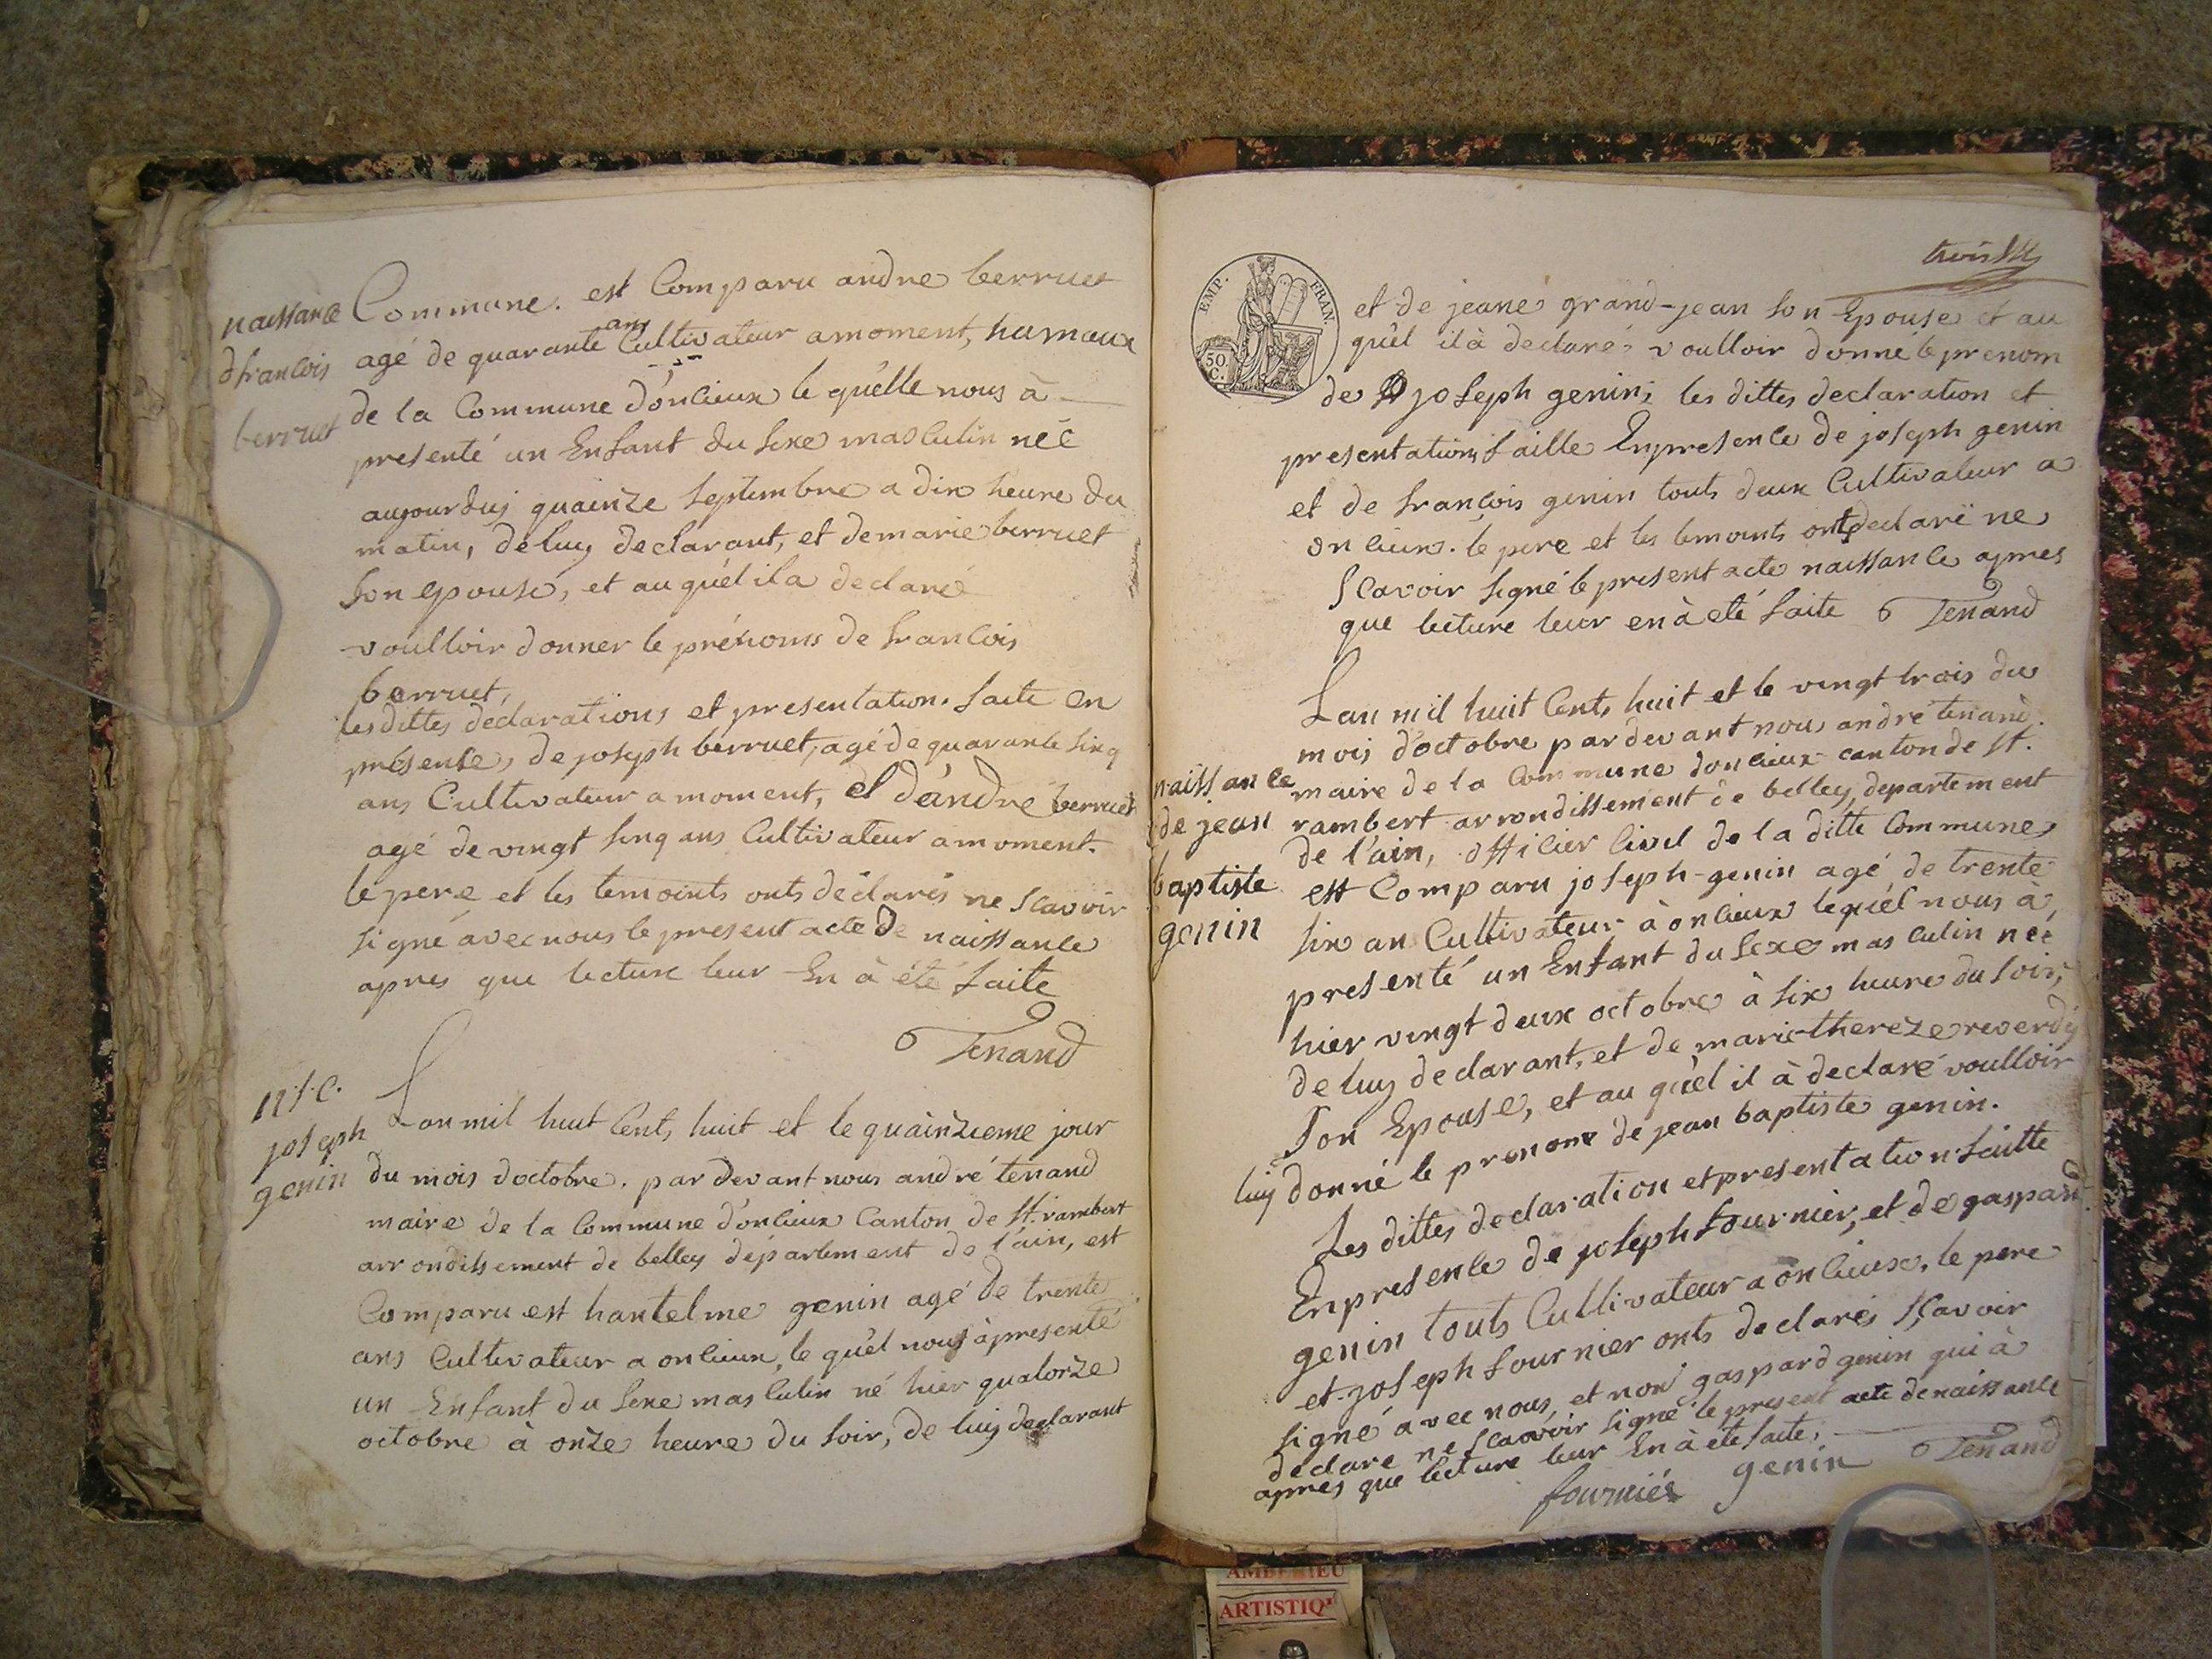 naissance
dfrancois
berruet
Commune. est Comparu andre berruet
agé de quarante ans Cultivateur amoment, hameaux
de la Commune d'onlieux le qu'elle nous à
presenté un Enfant du sexe masculin néé
aujourduij quainze septembre a dix heure du
matin, deluij declarant, et demarie berruet
son epouse, et au qu'él il a declaré
voulloir donner le prénoms de francois
berruet,
les dittes déclarations et presentation. faite en
présense, de joseph berruet, agé de quarante sinq
ans Cultivateur a moment, et d'andré berruet
agé de vingt sinq ans Cultivateur amoment.
le pere et les temoints onts déclarés ne scavoir
signé avec nous le present acte de naissance
apres que lecture leur En à été faite
Tenand
joseph
genin
Lan mil huit Cents huit et le quainzieme jour
du mois doctobre. par devant nous andré tenand
maire de la Commune d'onlieux Canton de St. rambert
arrondissement de belley département de l'ain, est
Comparu est hantelme genin agé de trente
ans Cultivateur a onlieux, le qu'él nous à presenté
un Enfant du sexe masculin né hier quatorze
octobre à onze heure du soir, de luij declarant
EMP. FRAN.
50 C.
et de jeane grand-jean son Epouse et au
qu'él il à declaré voulloir donné le prenom
de joseph genin; les dittes declaration et
presentation, faitte Enpresence de joseph genin
et de francois genin touts deux Cultivateur a
onlieux. le pere et les temoints onts declaré ne
scavoir signé le present acte naissance apres
que lecture leur en à eté faite Tenand
naissance
de jean
baptiste
genin
Lan mil huit Cents huit et le vingt trois du
mois d'octobre par devant nous andré tenand.
maire de la Commune donlieux canton de St.
rambert arrondissement de belley departement
de l'ain, officier civil de la ditte Commune
est Comparu joseph-genin agé de trente
six an Cultivateur à onlieux lequél nous à
presenté un Enfant du sexe masculin néé
hier vingt deux octobre à six heure du soir,
de luij declarant, et de marie thereze reverdij
son Epouse, et au qu'él il à declaré voulloir
luij donné le prenom de jean baptiste genin.
Les dittes declaration et presentation faitte
Enpresence de joseph fournier, et de gaspard
genin touts Cultivateur a onlieux, le pere
et joseph fournier onts declarés scavoir
signé avec nous, et non gaspard genin qui à
declare ne scavoir signé le present acte denaissance
apres que lecture leur En à eté faite.
fourniér genin Tenand
AMBERIEU
ARTISTIQ